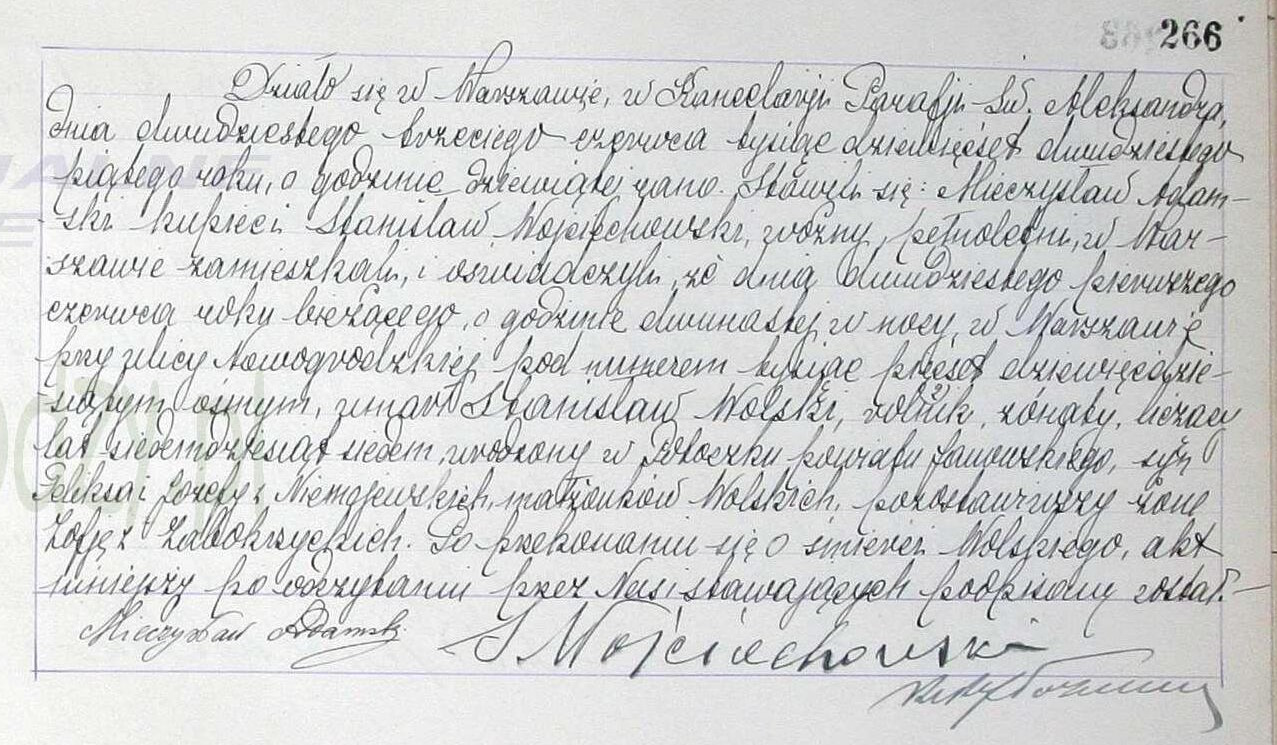 266
Działo się w Warszawie, w Kancelarji Parafji Św. Aleksandra,
dnia dwudziestego trzeciego czerwca tysiąc dziewięćset dwudziestego
piątego roku, o godzinie dziewiątej rano. Stawili się: Mieczysław Adam-
ski kupiec i Stanisław Wojciechowski, woźny, pełnoletni, w War-
szawie zamieszkali, i oświadczyli, że dnia dwudziestego pierwszego
czerwca roku bieżącego, o godzinie dwunastej w nocy, w Warszawie
przy ulicy Nowogrodzkiej pod numerem tysiąc pięćset dziewięćdzie-
siątym ósmym, umarł Stanisław Wolski, rolnik, żonaty, liczący
lat siedemdziesiąt siedem, urodzony w Potoczku powiatu Janowskiego, syn
Feliksa i Józefy z Niemojewskich, małżonków Wolskich, pozostawiwszy żonę
Zofję z Zabokrzyckich. Po przekonaniu się o śmierci Wolskiego, akt
niniejszy po odczytaniu przez Nas i stawających podpisany został.-
Mieczysław Adamski
S Wojciechowski